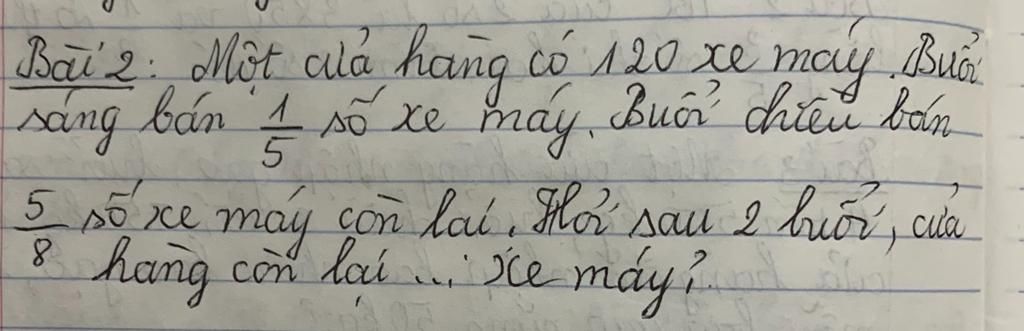 Bài 2: Một cửa hàng có 120 xe máy. Buổi
sáng bán 1/5 số xe máy. Buổi chiều bán
5/8 số xe máy còn lại. Hỏi sau 2 buổi, cửa
hàng còn lại ... xe máy?